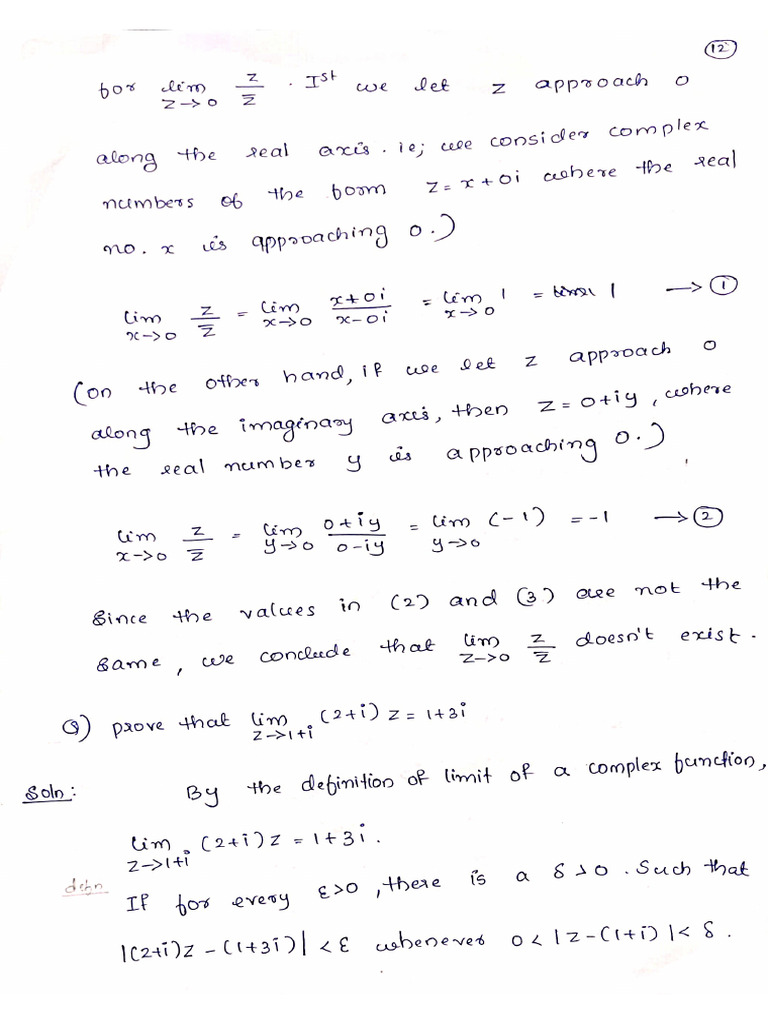 12
for lim z→0 z/z̅ . Ist we let z approach 0
along the real axis. ie; we consider complex
numbers of the form z = x + 0i where the real
no. x is approaching 0.)
lim x→0 z/z̅ = lim x→0 x+0i/x-0i = lim x→0 1 = 1 → ①
(on the other hand, if we let z approach 0
along the imaginary axis, then z = 0+iy, where
the real number y is approaching 0.)
lim x→0 z/z̅ = lim y→0 0+iy/0-iy = lim y→0 (-1) = -1 → ②
Since the values in (2) and (3) are not the
same, we conclude that lim z→0 z/z̅ doesn't exist.
Q) prove that lim z→1+i (2+i) z = 1+3i
Soln: By the definition of limit of a complex function,
lim z→1+i (2+i)z = 1+3i.
defn If for every ε>0, there is a δ>0. Such that
|(2+i)z - (1+3i)| < ε whenever 0 < |z-(1+i)| < δ.